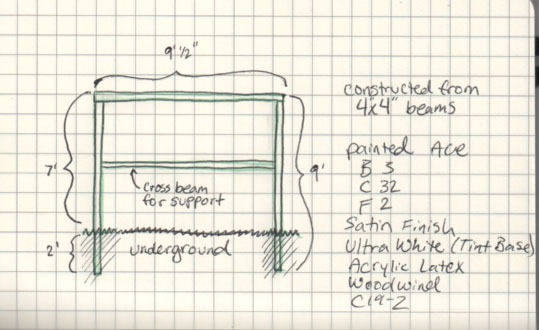 9' 1/2"
7'
cross beam
for support
9'
2'
underground
constructed from
4"x4" beams
painted Ace
B 3
C 32
F 2
Satin Finish
Ultra White (Tint Base)
Acrylic Latex
Woodwind
C19-2